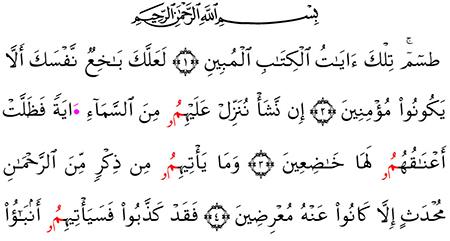 بِسْمِ اللَّهِ الرَّحْمَٰنِ الرَّحِيمِ
طسٓمٓۚ تِلْكَ ءَايَٰتُ الْكِتَٰبِ الْمُبِينِ ١ لَعَلَّكَ بَٰخِعٌ نَّفْسَكَ أَلَّا
يَكُونُواْ مُؤْمِنِينَ ٢ إِن نَّشَأْ نُنَزِّلْ عَلَيْهِمُۥ مِنَ السَّمَآءِ •ايَةً فَظَلَّتْ
أَعْنَٰقُهُمُۥ لَهَا خَٰضِعِينَ ٣ وَمَا يَأْتِيهِمُۥ مِن ذِكْرٍ مِّنَ الرَّحْمَٰنِ
مُحْدَثٍ إِلَّا كَانُواْ عَنْهُ مُعْرِضِينَ ٤ فَقَدْ كَذَّبُواْ فَسَيَأْتِيهِمُۥ أَنۢبَٰٓؤُاْ